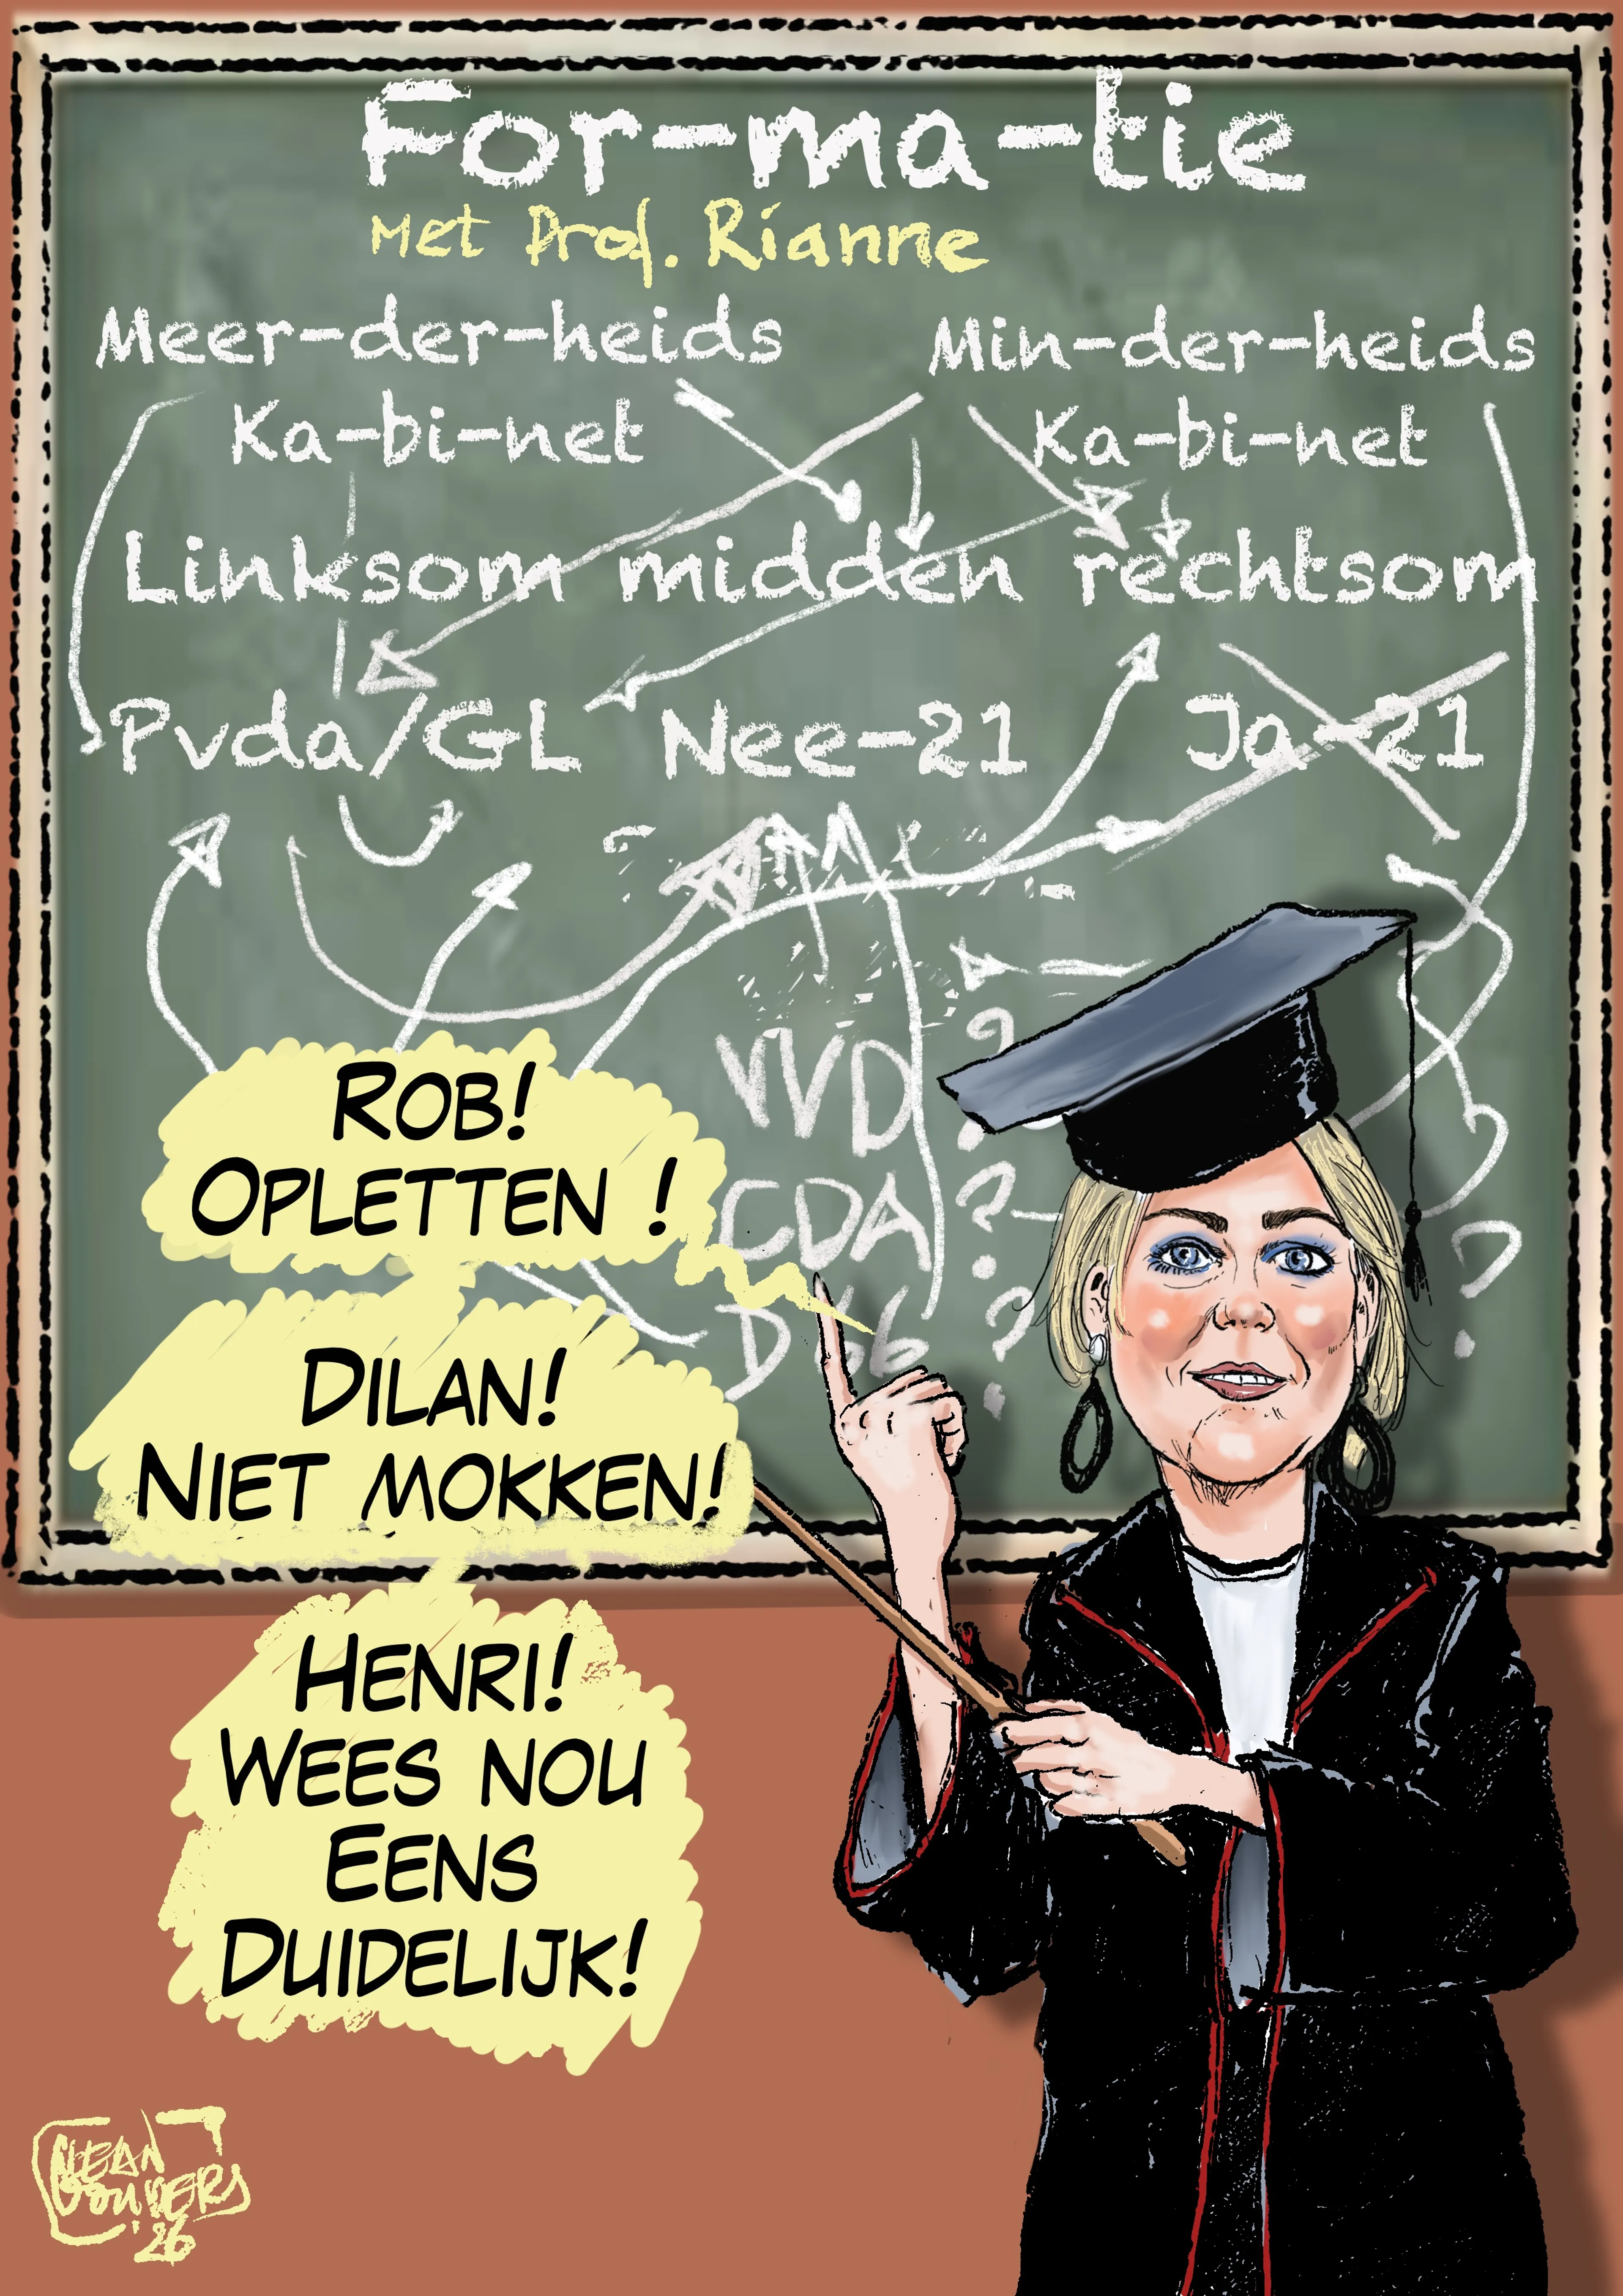 For-ma-tie
Met Prof. Rianne
Meer-der-heids
Ka-bi-net
Min-der-heids
Ka-bi-net
Linksom midden rechtsom
Pvda/GL Nee-21 Ja-21
VVD ?
CDA ?
D66 ?
?
Rob!
Opletten !
Dilan!
Niet mokken!
Henri!
Wees nou
Eens
Duidelijk!
'26